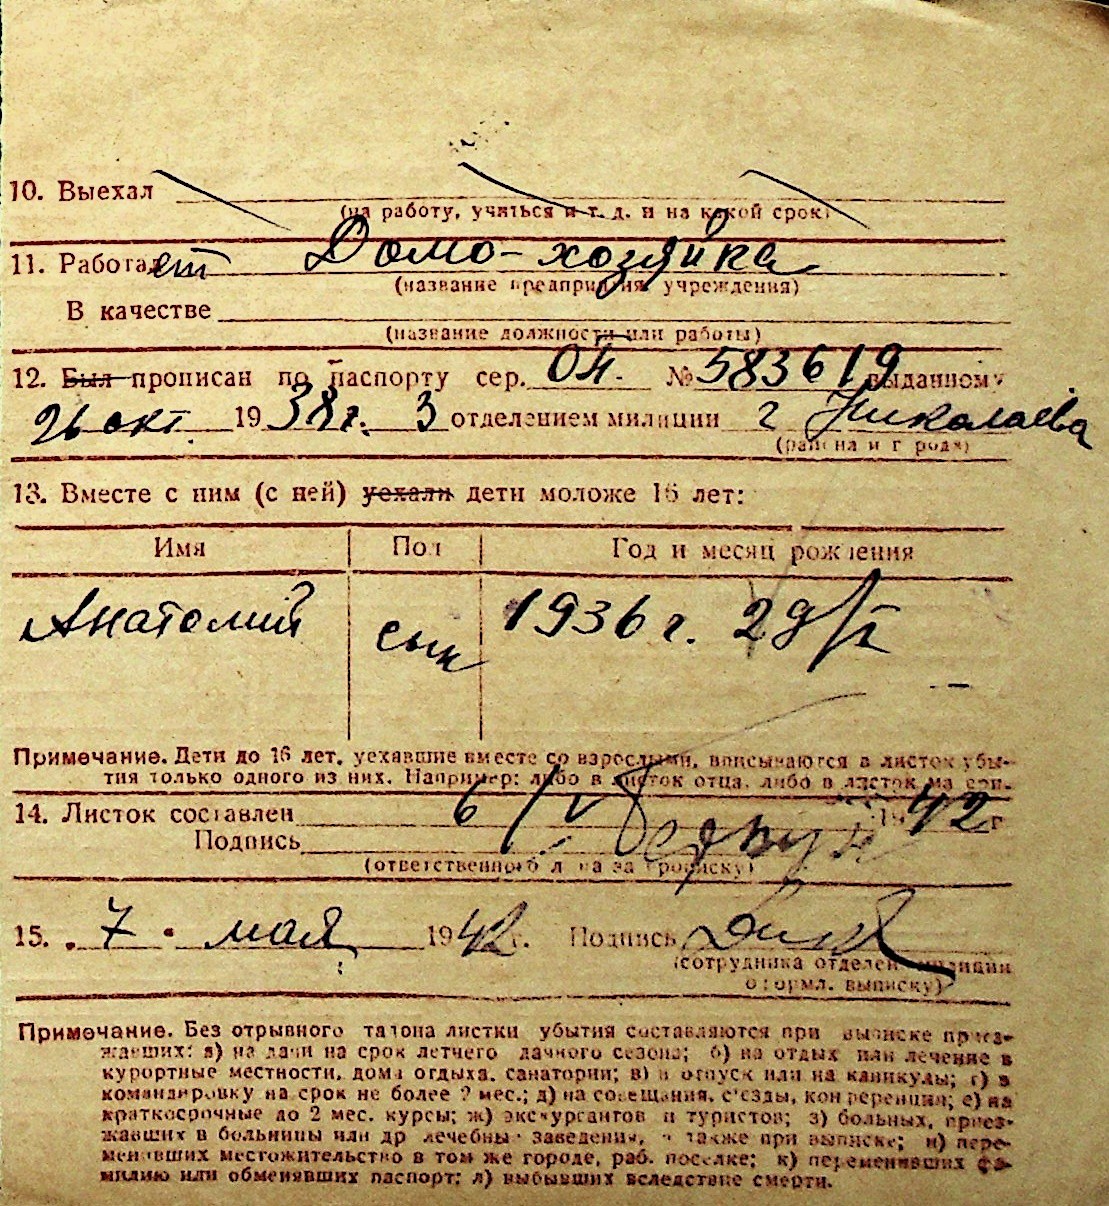 10. Выехал
(на работу, учиться и т. д. и на какой срок)
11. Работает Домо-хозяйка
(название предприятия, учреждения)
В качестве
(название должности или работы)
12. Был прописан по паспорту сер. № 583619 выданному
26 окт. 1938 г. 3 отделением милиции г Николаева
(района и города)
13. Вместе с ним (с ней) уехали дети моложе 16 лет:
Имя Пол Год и месяц рождения
Анатолий сын 1936 г.
Примечание. Дети до 16 лет, уехавшие вместе со взрослыми, вписываются в листок убы-
тия только одного из них. Например: либо в листок отца, либо в листок матери.
14. Листок составлен 6/V 1942 г
Подпись
(ответственного лица за прописку)
15. 7 мая 1942 г. Подпись
(сотрудника отделен. милиции
оформл. выписку)
Примечание. Без отрывного талона листки убытия составляются при выписке приез-
жавших: а) на дачи на срок летнего дачного сезона; б) на отдых или лечение в
курортные местности, дома отдыха, санатории; в) в отпуск или на каникулы; г) в
командировку на срок не более 2 мес.; д) на совещания, с'езды, конференции; е) на
краткосрочные до 2 мес. курсы; ж) экскурсантов и туристов; з) больных, приез-
жавших в больницы или др лечебны заведения, а также при выписке; и) пере-
менивших местожительство в том же городе, раб. поселке; к) переменивших фа-
милию или обменявших паспорт; л) выбывших вследствие смерти.